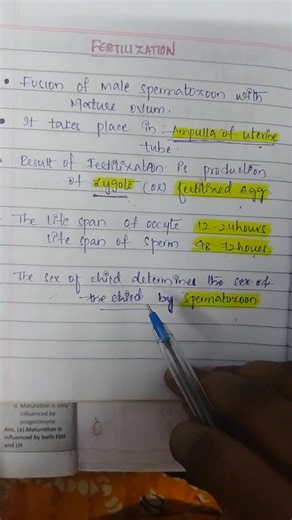 FERTILIZATION
• Fusion of Male spermatozoon with
Mature ovum.
• It takes place in : Ampulla of uterine
tube.
• Result of Fertilization is production
of zygote (or) fertilized egg
- The life span of oocyte 12-24hours
life span of sperm 48-72hours.
The sex of child determines the sex of
the child by spermatozoon
d. Maturation is only
influenced by
progesterone
Ans. (a) Maturation is
influenced by both FSH
and LH